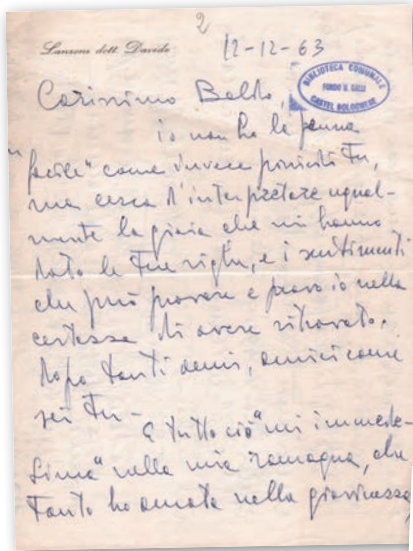 2
Lanzoni dott. Davide
12-12-63
BIBLIOTECA COMUNALE
FONDO U. GALLI
CASTEL BOLOGNESE
Carissimo Baldo,
io non ho la penna
"facile" come invece Tu,
ma cerca d'interpretare ugual-
mente la gioia che mi hanno
dato le Tue righe, e i sentimenti
che può provare e provo io nella
certezza di avere ritrovato,
dopo tanti anni, amici come
sei Tu -
E tutto ciò "mi immede-
sima" nella mia romagna, che
tanto ho amata nella giovinezza,